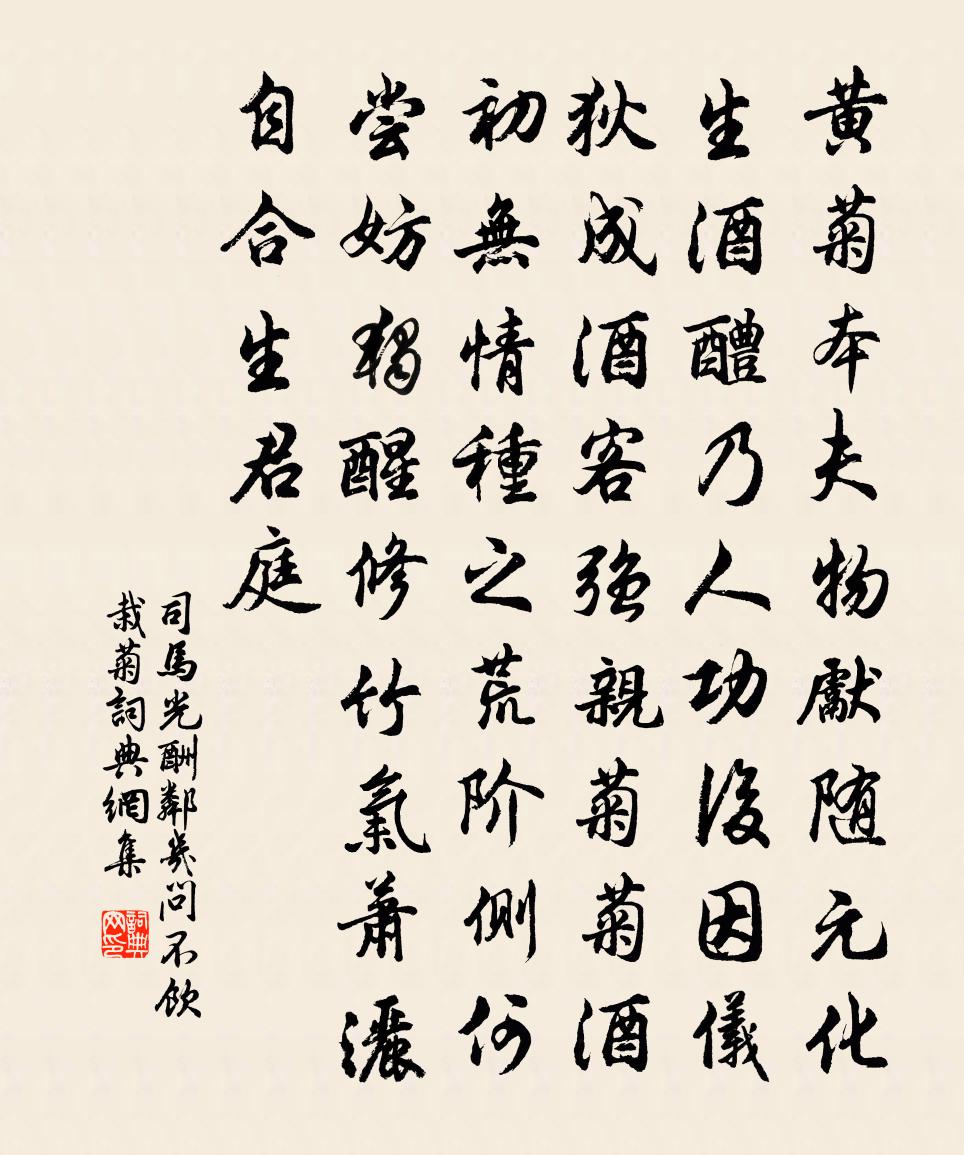 黄菊本夫物獻随元化
生酒醴乃人功後因儀
狄成酒客強親菊菊酒
初無情種之荒阶側何
尝妨獨醒修竹氣蕭灑
自合生君庭
司馬光酬鄰幾問不飲
栽菊詞典網集
詞典网印